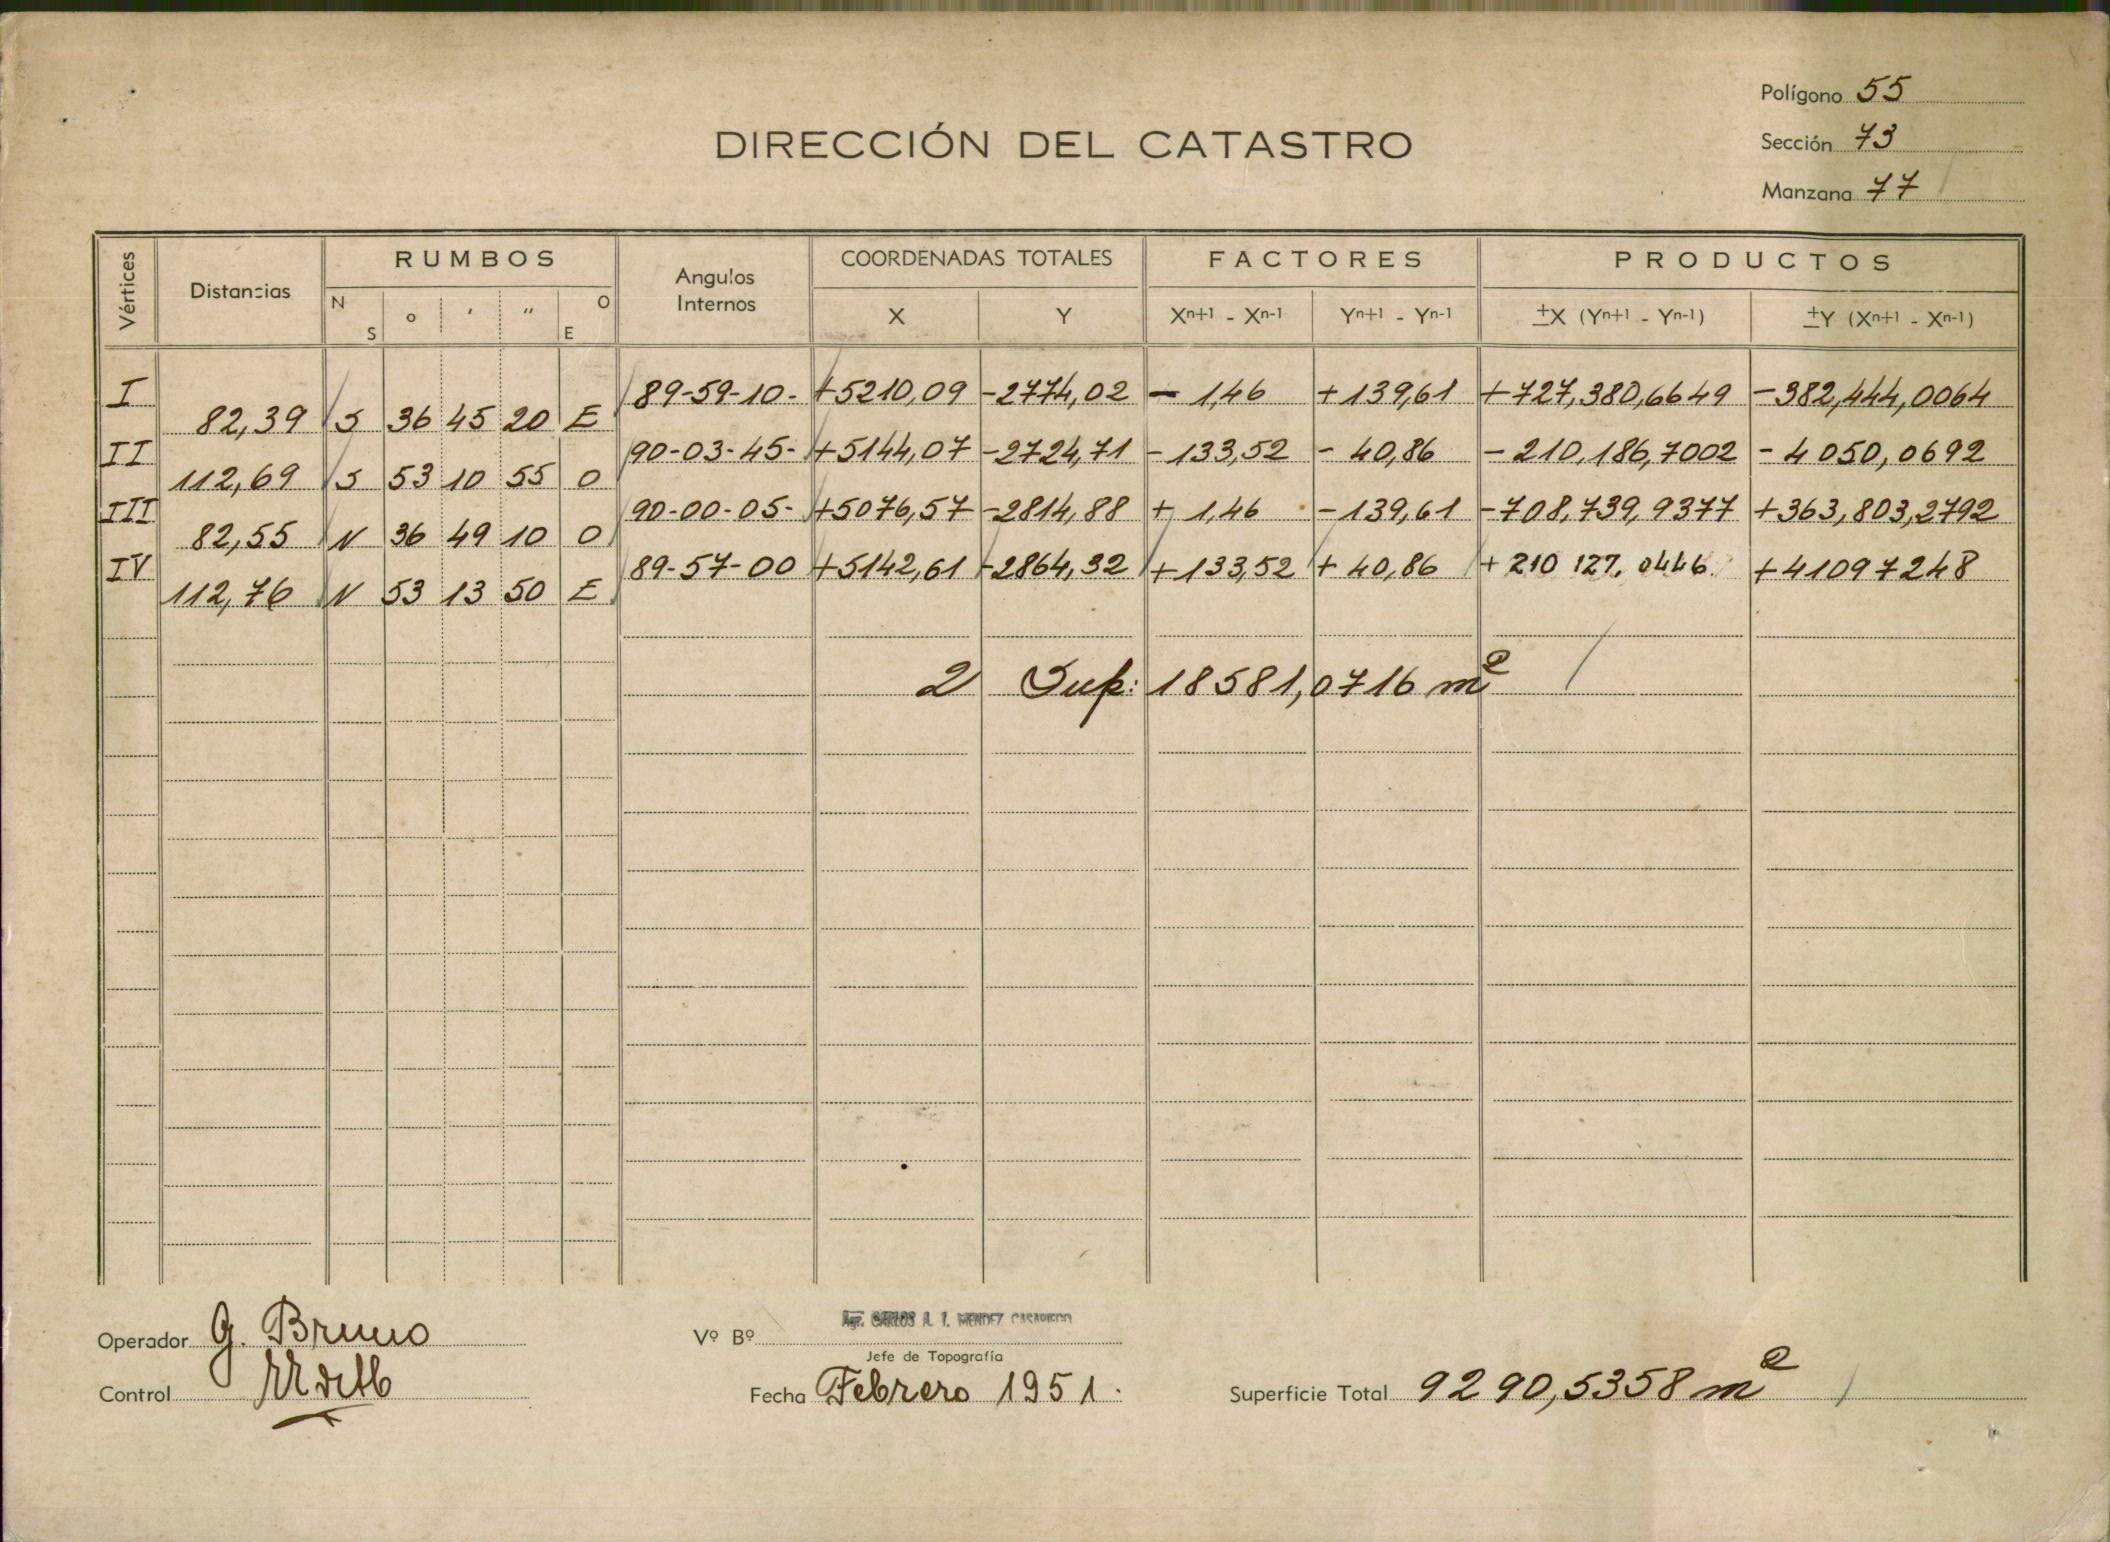 Polígono 55
DIRECCIÓN DEL CATASTRO
Sección 73
Manzana 77
Vértices Distancias RUMBOS Angulos Internos COORDENADAS TOTALES FACTORES PRODUCTOS
N S o ' '' O E X Y Xn+1 - Xn-1 Yn+1 - Yn-1 ±X (Yn+1 - Yn-1) ±Y (Xn+1 - Xn-1)
I 89-59-10- +5210,09 -2774,02 - 1,46 +139,61 +727,380,6649 -382,444,0064
82,39 S 36 45 20 E
II 90-03-45- +5144,07 -2724,71 -133,52 - 40,86 -210,186,7002 -4050,0692
112,69 S 53 10 55 O
III 90-00-05- +5076,57 -2814,88 + 1,46 -139,61 -708,739,9377 +363,803,2792
82,55 N 36 49 10 O
IV 89-57-00 +5142,61 -2864,32 +133,52 + 40,86 +210 127,0446 +41097248
112,76 N 53 13 50 E
2 Sup: 18581,0716 m²
Operador G. Bruno
Vº Bº Agr. CARLOS A. I. MENDEZ CASARIEGO
Jefe de Topografía
Control
Fecha Febrero 1951.
Superficie Total 9290,5358 m²